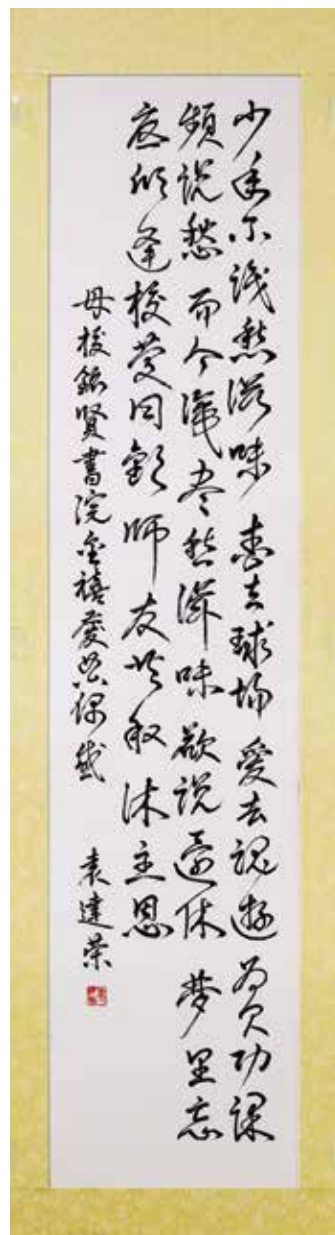 少年不識愁滋味 愛去球場 愛去魂遊 为欠功課
頻說愁 而今識尽愁滋味 欲說還休 夢里忘
欣逢校慶同歡 師友共敘沐主恩
母校銘賢書院金禧慶典偶感 袁建荣